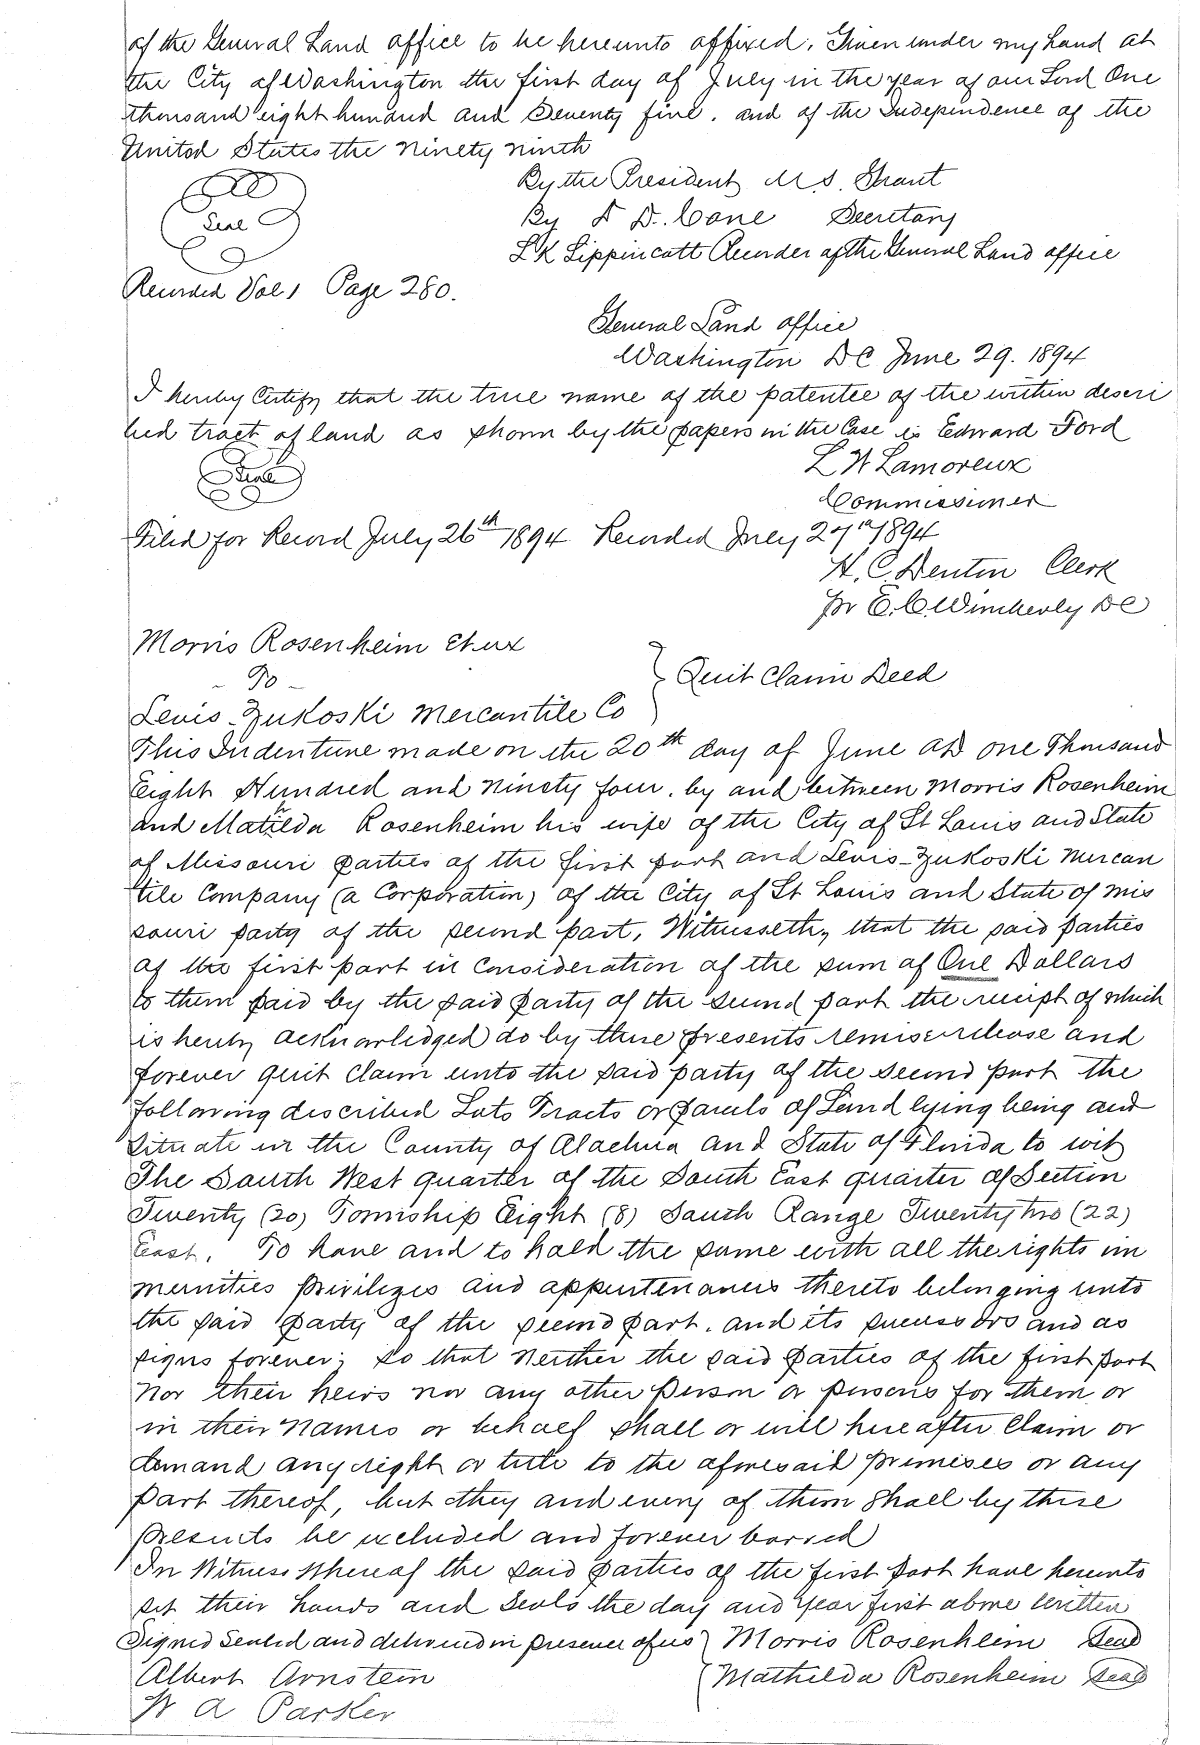 of the General Land office to be hereunto affixed. Given under my hand at
the City of Washington the first day of July in the year of our Lord One
thousand eight hundred and Seventy five. and of the Independence of the
United States the ninety ninth
By the President U. S. Grant
By D. D. Cone Secretary
Seal
L K Lippincott Recorder of the General Land office
Recorded Vol 1 Page 280.
General Land office
Washington DC June 29. 1894
I hereby Certify that the true name of the patentee of the within descri
bed tract of land as shown by the papers in the Case is Edward Ford
Seal
L W Lamoreux
Commissioner
Filed for Record July 26th 1894 Recorded July 27th 1894
H. C. Denton Clerk
pr E. C. Wimberly DC
Morris Rosenheim et ux
To
Quit Claim Deed
Levis-Zukoski Mercantile Co
This Indenture made on the 20th day of June AD one Thousand
Eight Hundred and ninety four. by and between Morris Rosenheim
and Mathilda Rosenheim his wife of the City of St Louis and State
of Missouri parties of the first part and Levis-Zukoski Mercan
tile Company (a Corporation) of the City of St Louis and State of Mis
souri party of the second part, Witnesseth, that the said parties
of the first part in Consideration of the sum of One Dollars
to them paid by the said party of the second part the receipt of which
is hereby acknowledged do by these presents remise release and
forever quit claim unto the said party of the second part the
following described Lots Tracts or parcels of Land lying being and
situate in the County of Alachua and State of Florida to wit
The South West quarter of the South East quarter of Section
Twenty (20) Township Eight (8) South Range Twenty two (22)
East. To have and to hold the same with all the rights im
munities privileges and appurtenances thereto belonging unto
the said party of the second part. and its successors and as
signs forever; so that neither the said parties of the first part
nor their heirs nor any other person or persons for them or
in their names or behalf shall or will hereafter claim or
demand any right or title to the aforesaid premises or any
part thereof, but they and every of them shall by these
presents be excluded and forever barred
In Witness Whereof the said parties of the first part have hereunto
set their hands and seals the day and year first above written
Signed Sealed and delivered in presence of us Morris Rosenheim Seal
Albert Arnstein Mathilda Rosenheim Seal
W A Parker